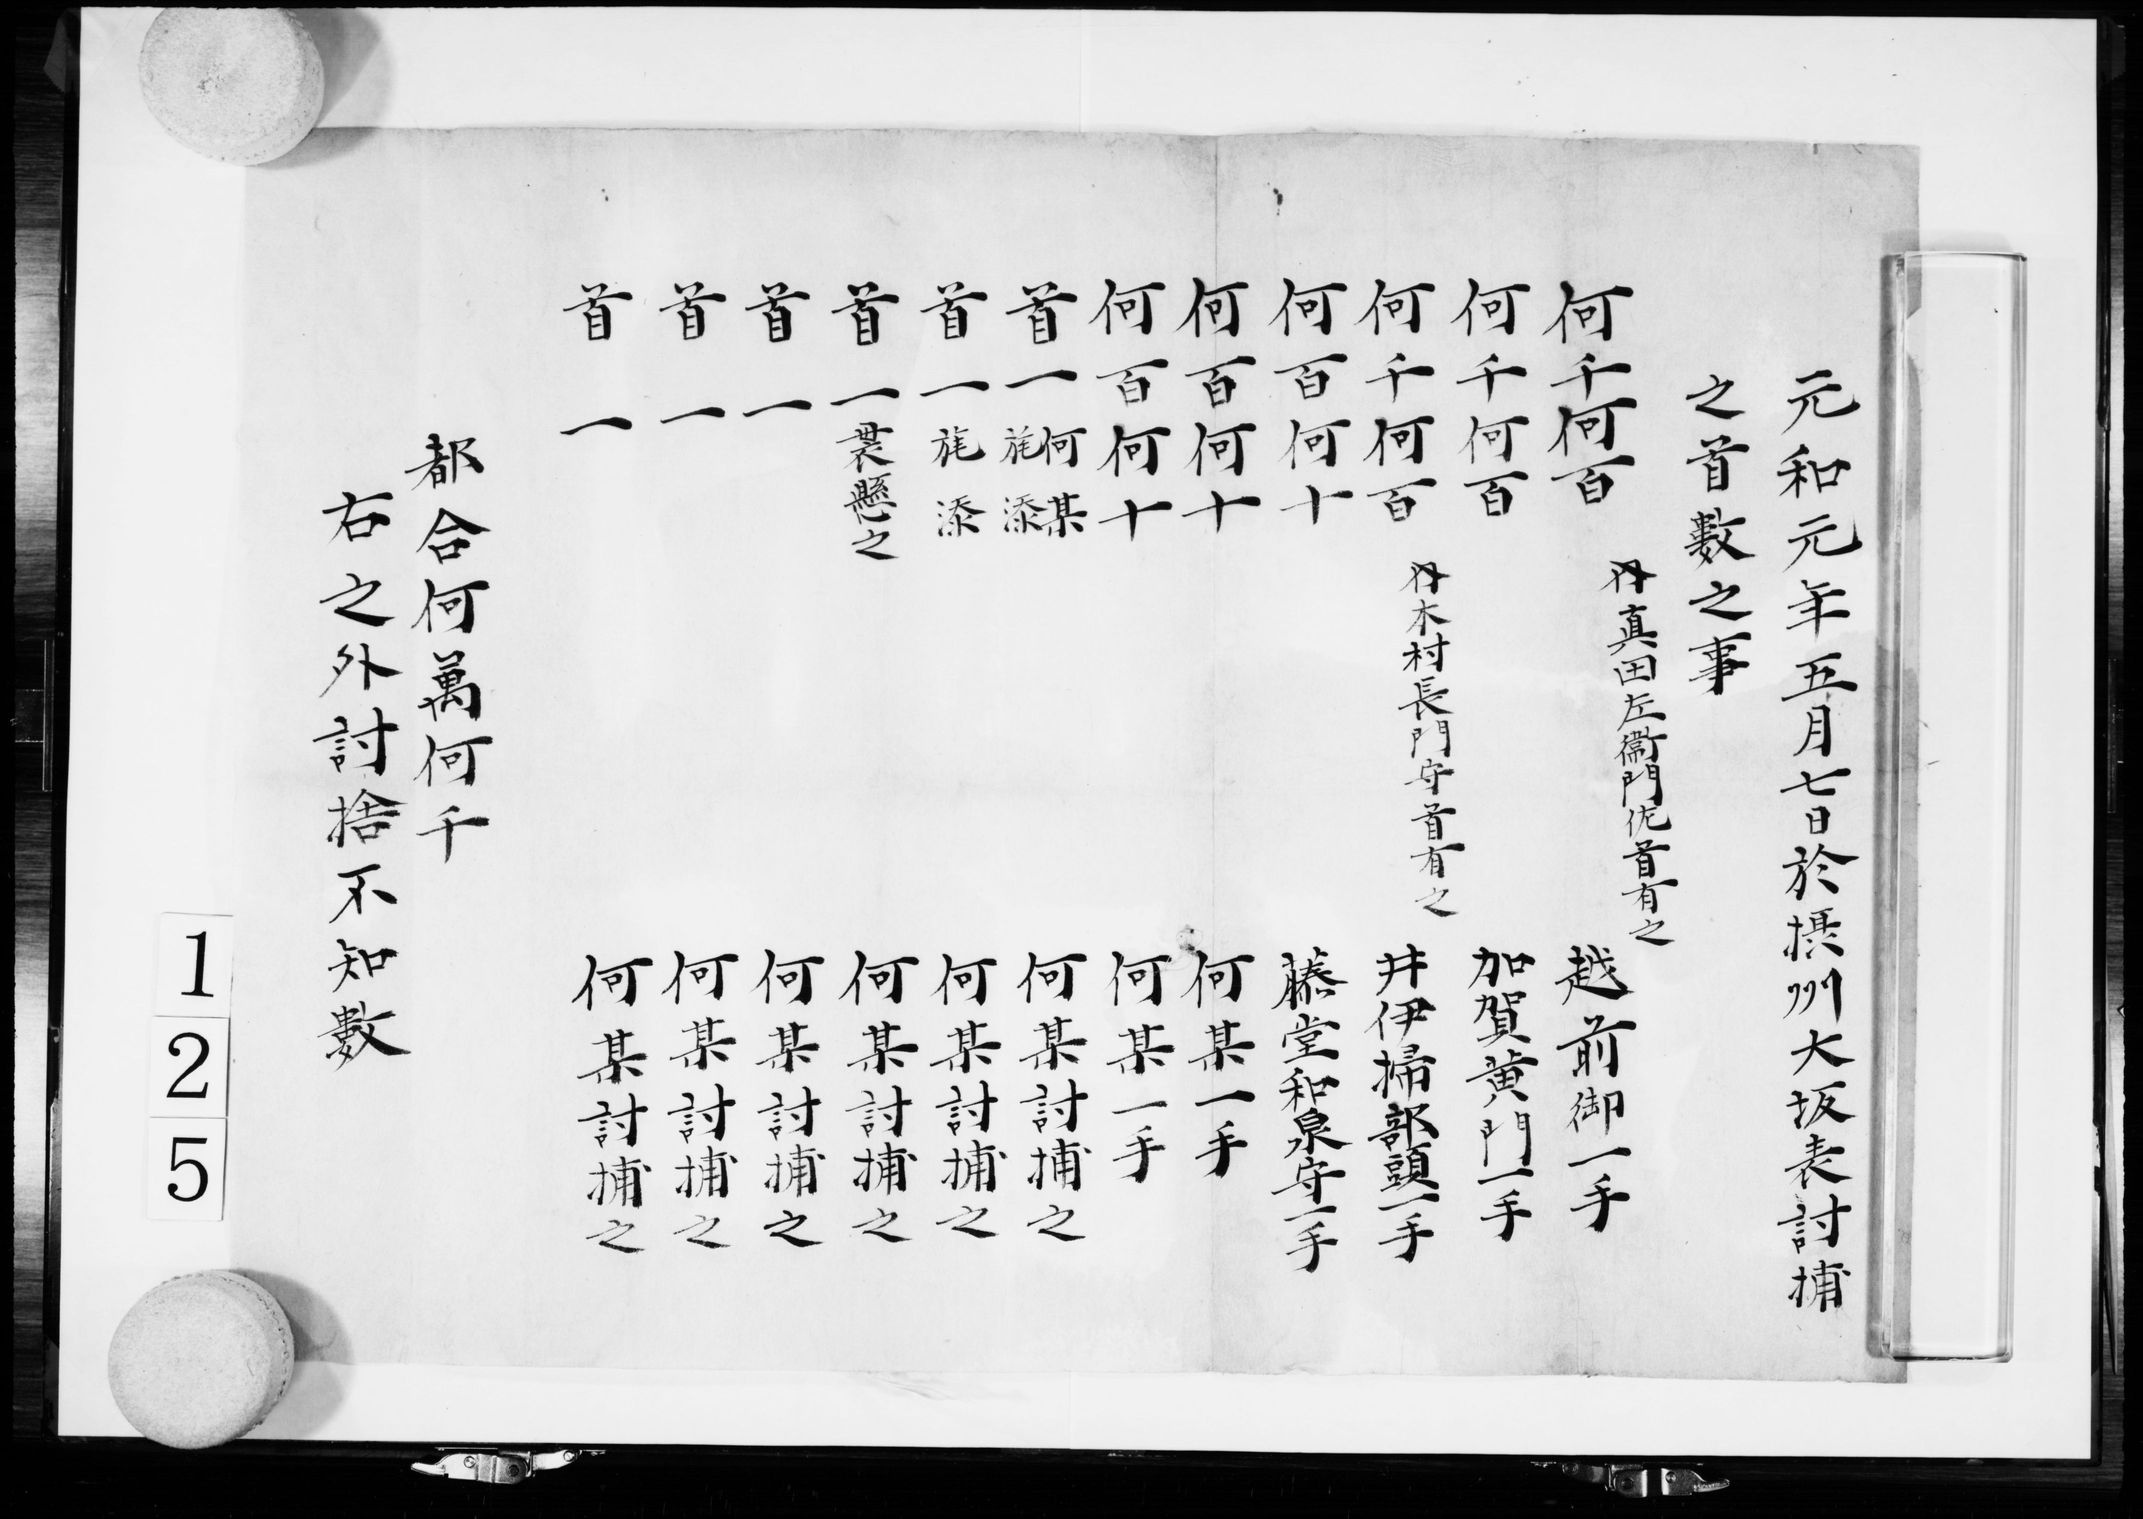 元和元年五月七日於摂州大坂表討捕
之首數之事
何千何百 越前御一手
并真田左衞門佐首有之
何千何百 加賀黄門一手
何千何百 井伊掃部頭一手
并木村長門守首有之
何百何十 藤堂和泉守一手
何百何十 何某一手
何百何十 何某一手
首一 何某旄添 何某討捕之
首一 旄添 何某討捕之
首一 懸之 何某討捕之
首一 何某討捕之
首一 何某討捕之
首一 何某討捕之
都合何萬何千
右之外討捨不知數
125